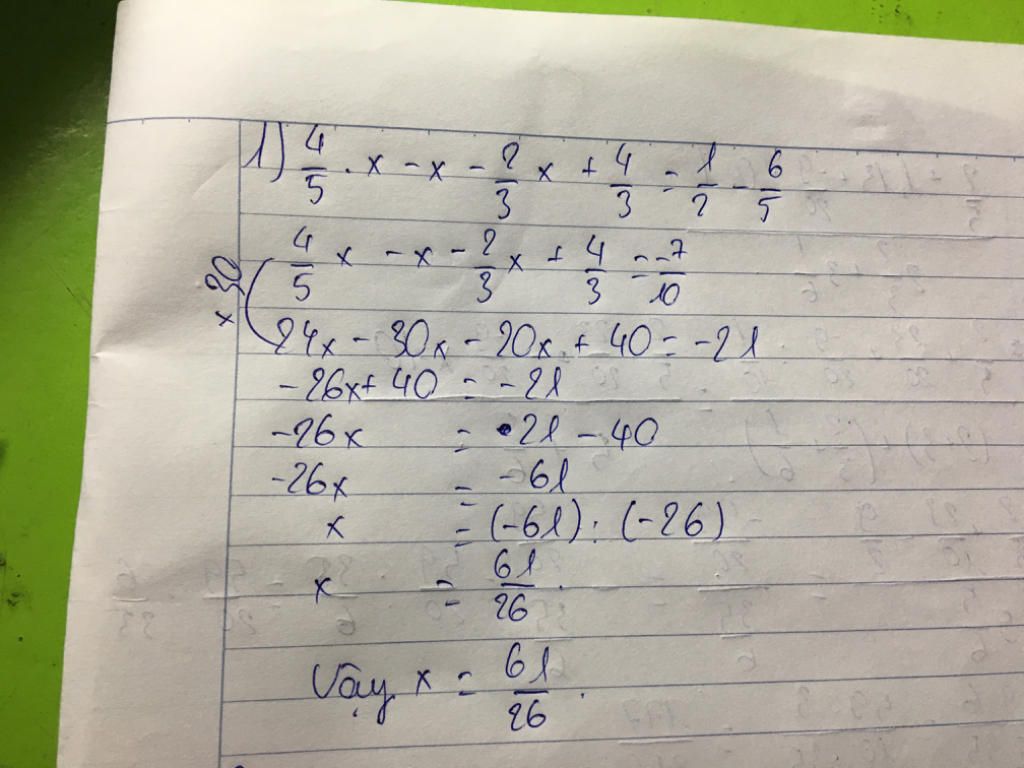 1) 4/5 . x - x - 2/3 x + 4/3 = 1/2 - 6/5
4/5 x - x - 2/3 x + 4/3 = -7/10
x 30
24x - 30x - 20x + 40 = -21
-26x + 40 = -21
-26x = -21 - 40
-26x = -61
x = (-61) : (-26)
x = 61/26 .
Vậy x = 61/26 .